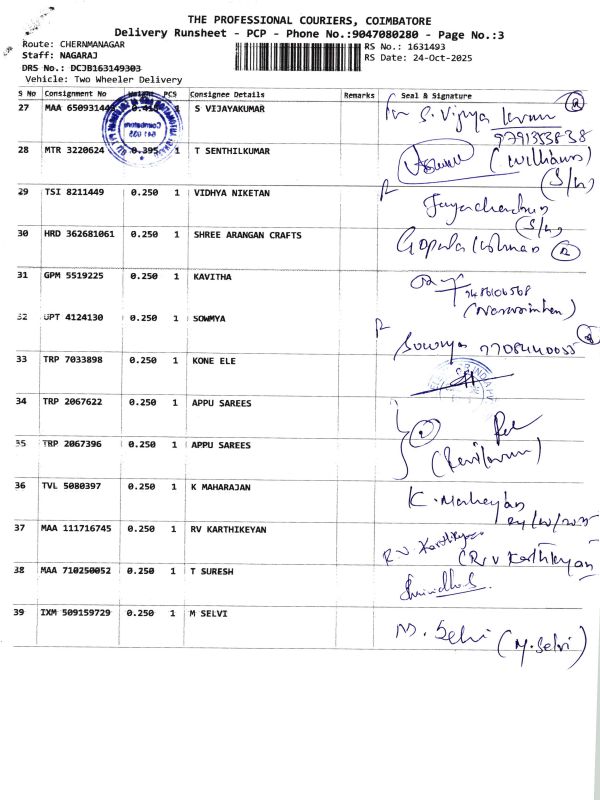 THE PROFESSIONAL COURIERS, COIMBATORE
Delivery Runsheet - PCP - Phone No.:9047080280 - Page No.:3
Route: CHERNMANAGAR
Staff: NAGARAJ
DRS No.: DCJB163149303
Vehicle: Two Wheeler Delivery
RS No.: 1631493
RS Date: 24-Oct-2025
S No Consignment No Weight PCS Consignee Details Remarks Seal & Signature
27 MAA 65093144 S VIJAYKUMAR for S. Vijya kumar
9791353838
28 MTR 3220624 0.395 1 T SENTHILKUMAR (Williams)
(S/n)
29 TSI 8211449 0.250 1 VIDHYA NIKETAN
(S/n)
30 HRD 362681061 0.250 1 SHREE ARANGAN CRAFTS
31 GPM 5519225 0.250 1 KAVITHA
9486106568
32 UPT 4124130 0.250 1 SOWMYA Sowmya
33 TRP 7033898 0.250 1 KONE ELE
34 TRP 2067622 0.250 1 APPU SAREES
35 TRP 2067396 0.250 1 APPU SAREES
36 TVL 5080397 0.250 1 K MAHARAJAN K. Maharajan
24/10/2025
37 MAA 111716745 0.250 1 RV KARTHIKEYAN R V Karthikeyan
(R v Karthikeyan
38 MAA 710250052 0.250 1 T SURESH
39 IXM 509159729 0.250 1 M SELVI M. Selvi (M. Selvi)